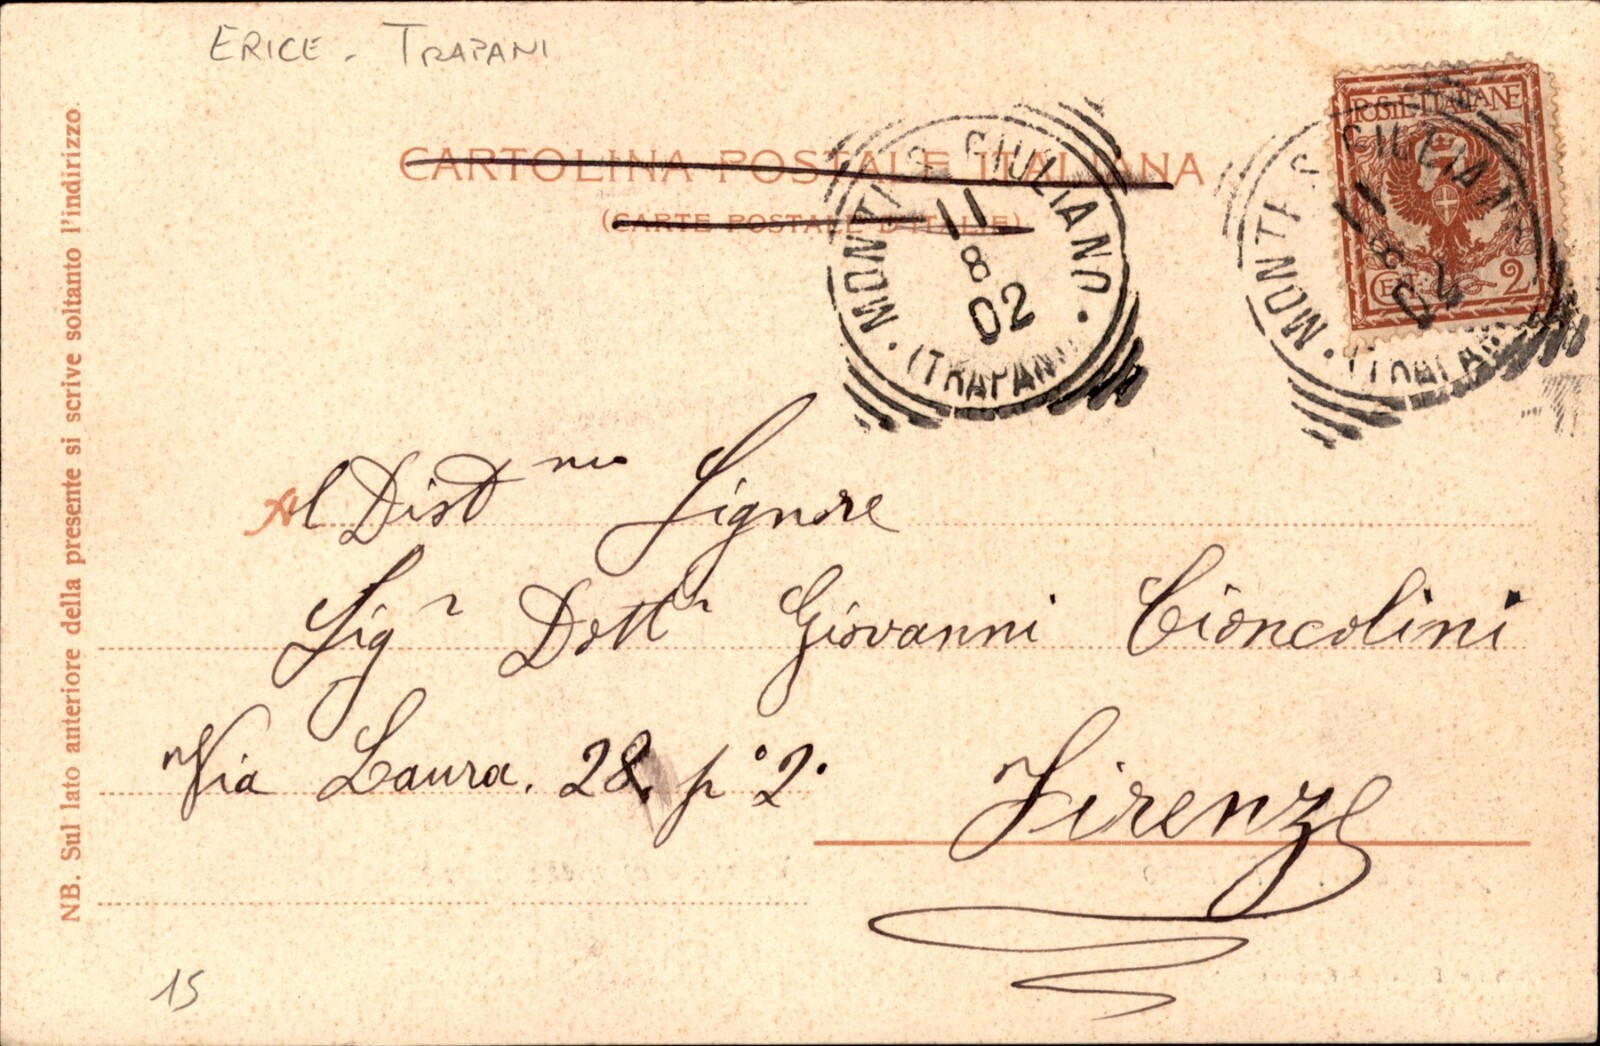 ERICE - TRAPANI
POSTE ITALIANE
CENT. 2
CARTOLINA POSTALE ITALIANA
(CARTE POSTALE D'ITALIE)
MONTE S. GIULIANO
11
8
02
(TRAPANI)
MONTE S. GIULIANO
11
8
(TRAPANI)
Al Distmo Signore
Sigr Dottr Giovanni Cioncolini
Via Laura. 28. p° 2°
Firenze
NB. Sul lato anteriore della presente si scrive soltanto l'indirizzo.
15